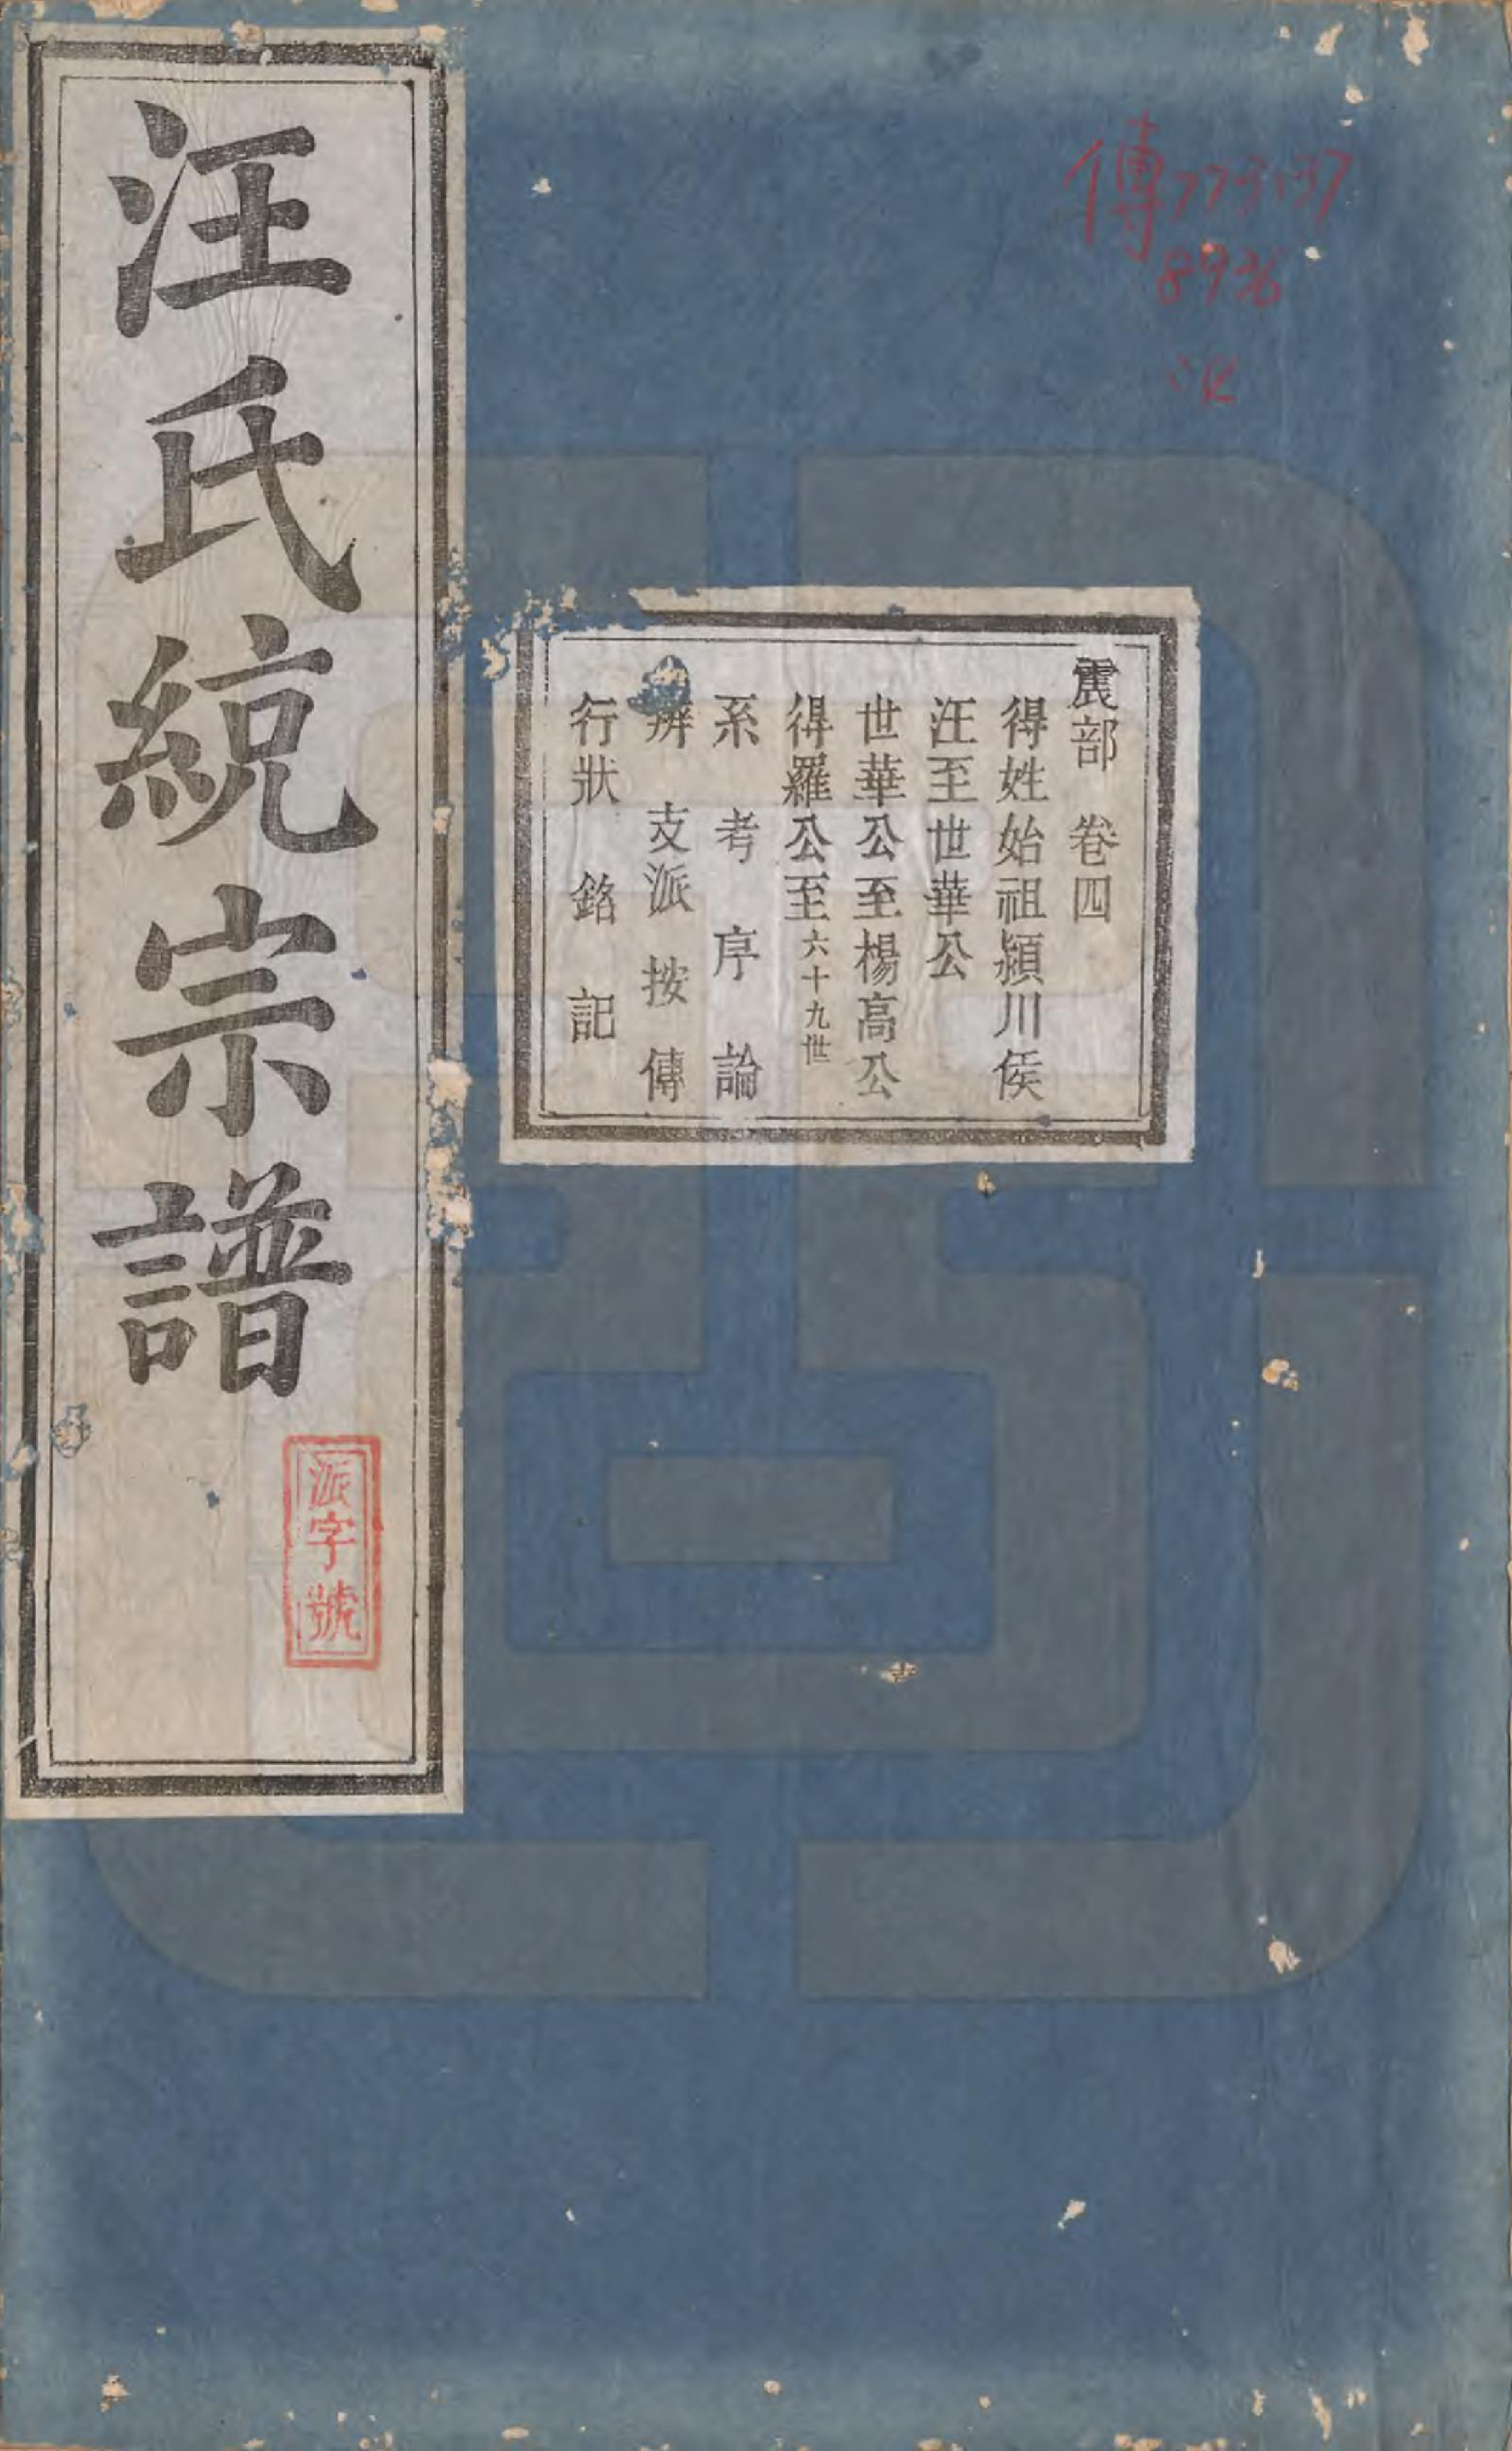 傳773.137
8936
:4
震部 卷四
得姓始祖潁川侯
汪至世華公
世華公至楊高公
得羅公至六十九世
系考序論
辨支派按傳
行狀銘記
汪氏統宗譜
派字號